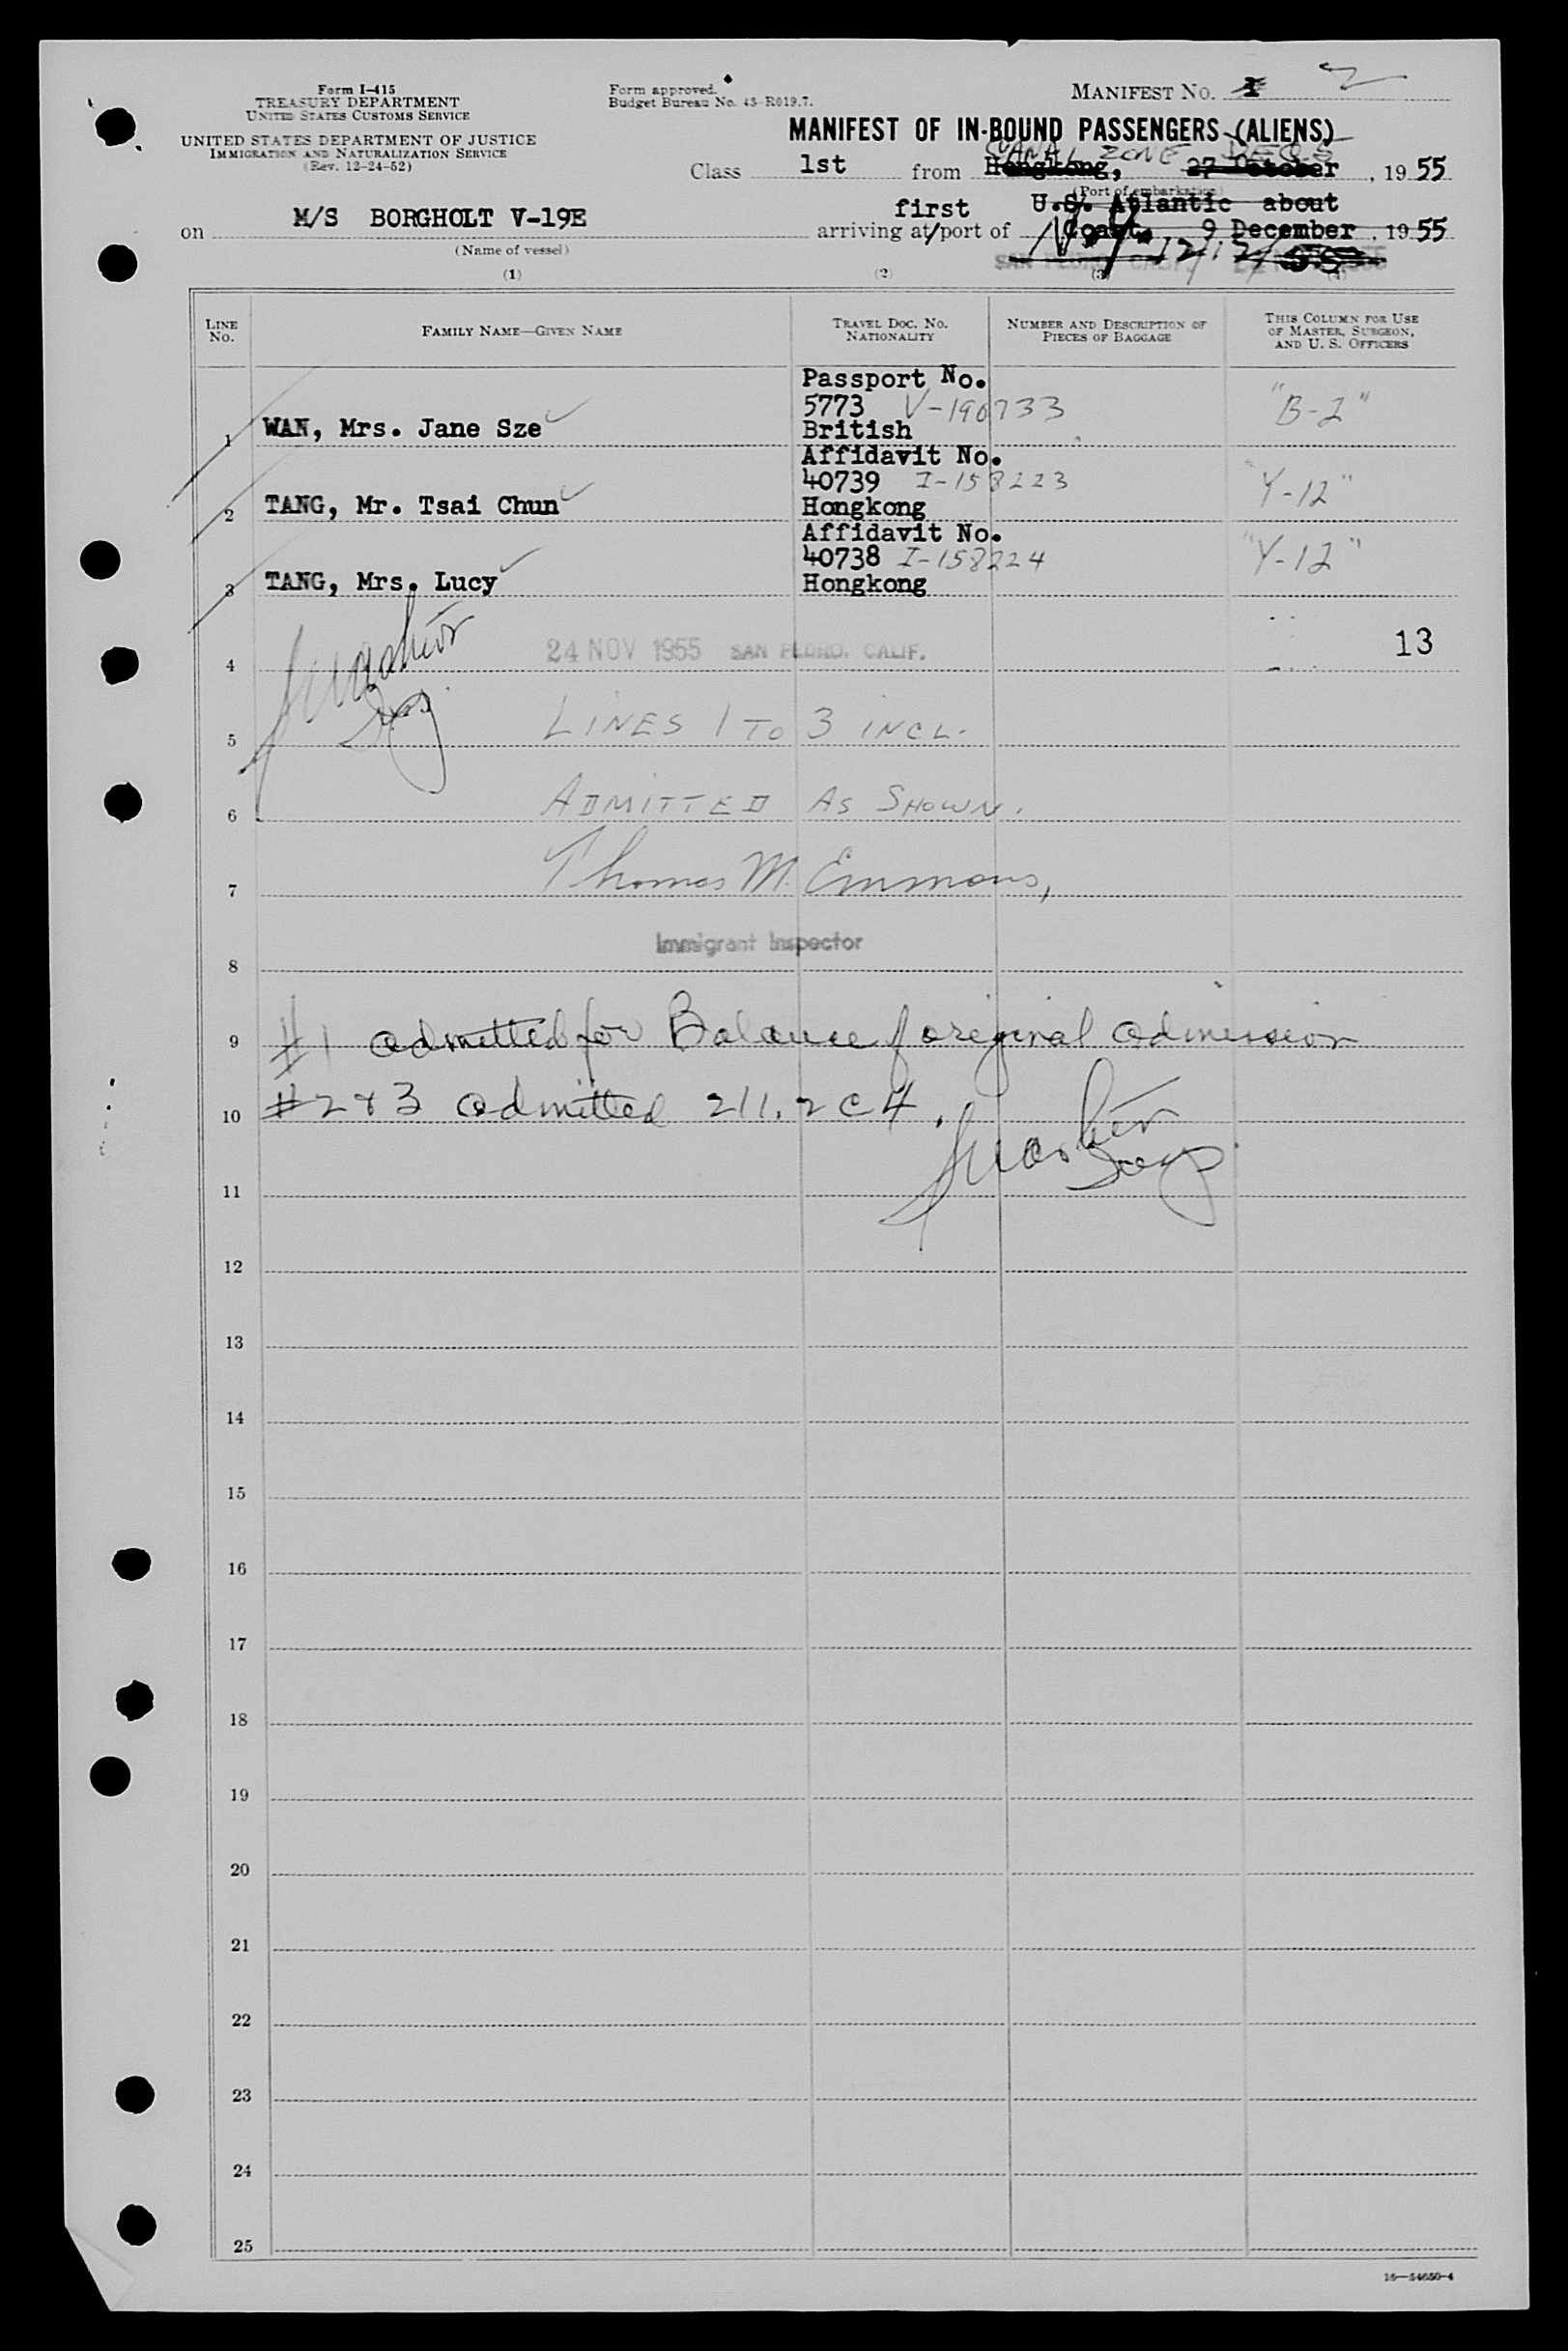 Form I-415
TREASURY DEPARTMENT
UNITED STATES CUSTOMS SERVICE
UNITED STATES DEPARTMENT OF JUSTICE
IMMIGRATION AND NATURALIZATION SERVICE
(Rev. 12-24-52)
Form approved.
Budget Bureau No. 43-R019.7.
MANIFEST No. 1 2
MANIFEST OF IN-BOUND PASSENGERS (ALIENS)
CANAL ZONE DEC. 5
Class 1st from Hongkong, 27 October, 1955
(Port of embarkation)
on M/S BORGHOLT V-19E
(Name of vessel)
first U.S. Atlantic about
arriving at/port of Coast, 9 December, 1955
N.Y. 12/12/55
SAN PEDRO, CALIF.
(1) (2) (3) (4)
LINE No.
FAMILY NAME—GIVEN NAME
TRAVEL DOC. NO. NATIONALITY
NUMBER AND DESCRIPTION OF PIECES OF BAGGAGE
THIS COLUMN FOR USE OF MASTER, SURGEON, AND U. S. OFFICERS
Passport No.
5773 V-190733 "B-2"
1 WAN, Mrs. Jane Sze British
Affidavit No.
40739 I-158223 "Y-12"
2 TANG, Mr. Tsai Chun Hongkong
Affidavit No.
40738 I-158224 "Y-12"
3 TANG, Mrs. Lucy Hongkong
24 NOV 1955 SAN PEDRO, CALIF. 13
4
LINES 1 TO 3 INCL.
5
ADMITTED AS SHOWN.
6
Thomas M. Emmons,
7
Immigrant Inspector
8
9 #1 admitted for Balance of original admission
10 #2 & 3 admitted 211.2 C 4.
11
12
13
14
15
16
17
18
19
20
21
22
23
24
25
16—54650-4